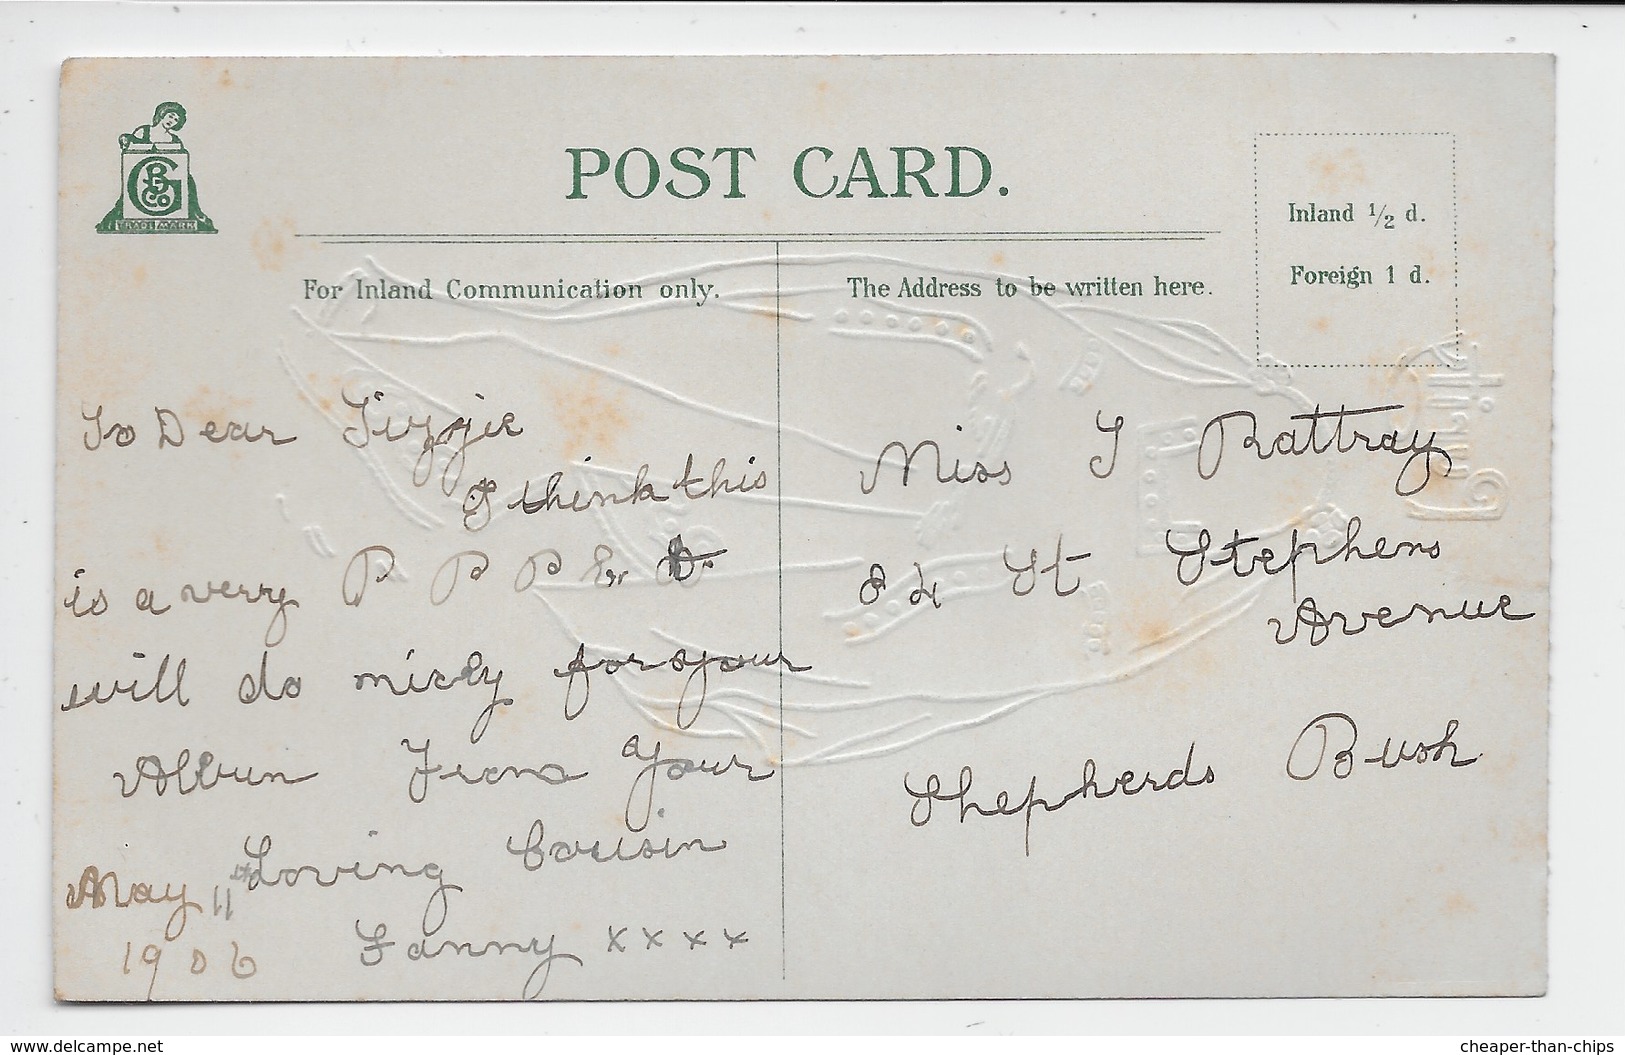 POST CARD.
GB & Co
TRADE MARK
Inland 1/2 d.
Foreign 1 d.
For Inland Communication only.
The Address to be written here.
To Dear Tizzie
I think this
is a very P P P &
will do nicely for your
Album From Your
Loving Cousin
May 11th
1906
Fanny x x x x
Miss T Rattray
84 St Stephens
Avenue
Shepherds Bush
www.delcampe.net
cheaper-than-chips